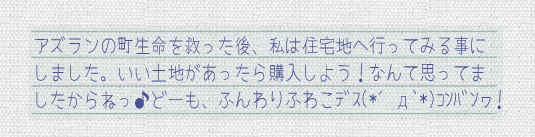 アズランの町生命を救った後、私は住宅地へ行ってみる事に
しました。いい土地があったら購入しよう！なんて思ってま
したからねっ♪どーも、ふんわりふわこデス(*´ д`*)ｺﾝﾊﾞﾝヮ!